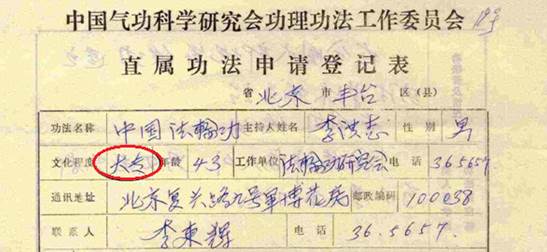 中国气功科学研究会功理功法工作委员会
直属功法申请登记表
省 北京 市 丰台 区（县）
功法名称 中国法轮功 主持人姓名 李洪志 性别 男
文化程度 大专 年龄 43 工作单位 法轮功研究会 电话 36.5657
通讯地址 北京复兴路九号军博花房 邮政编码 100038
联系人 李东辉 电话 36.5657.